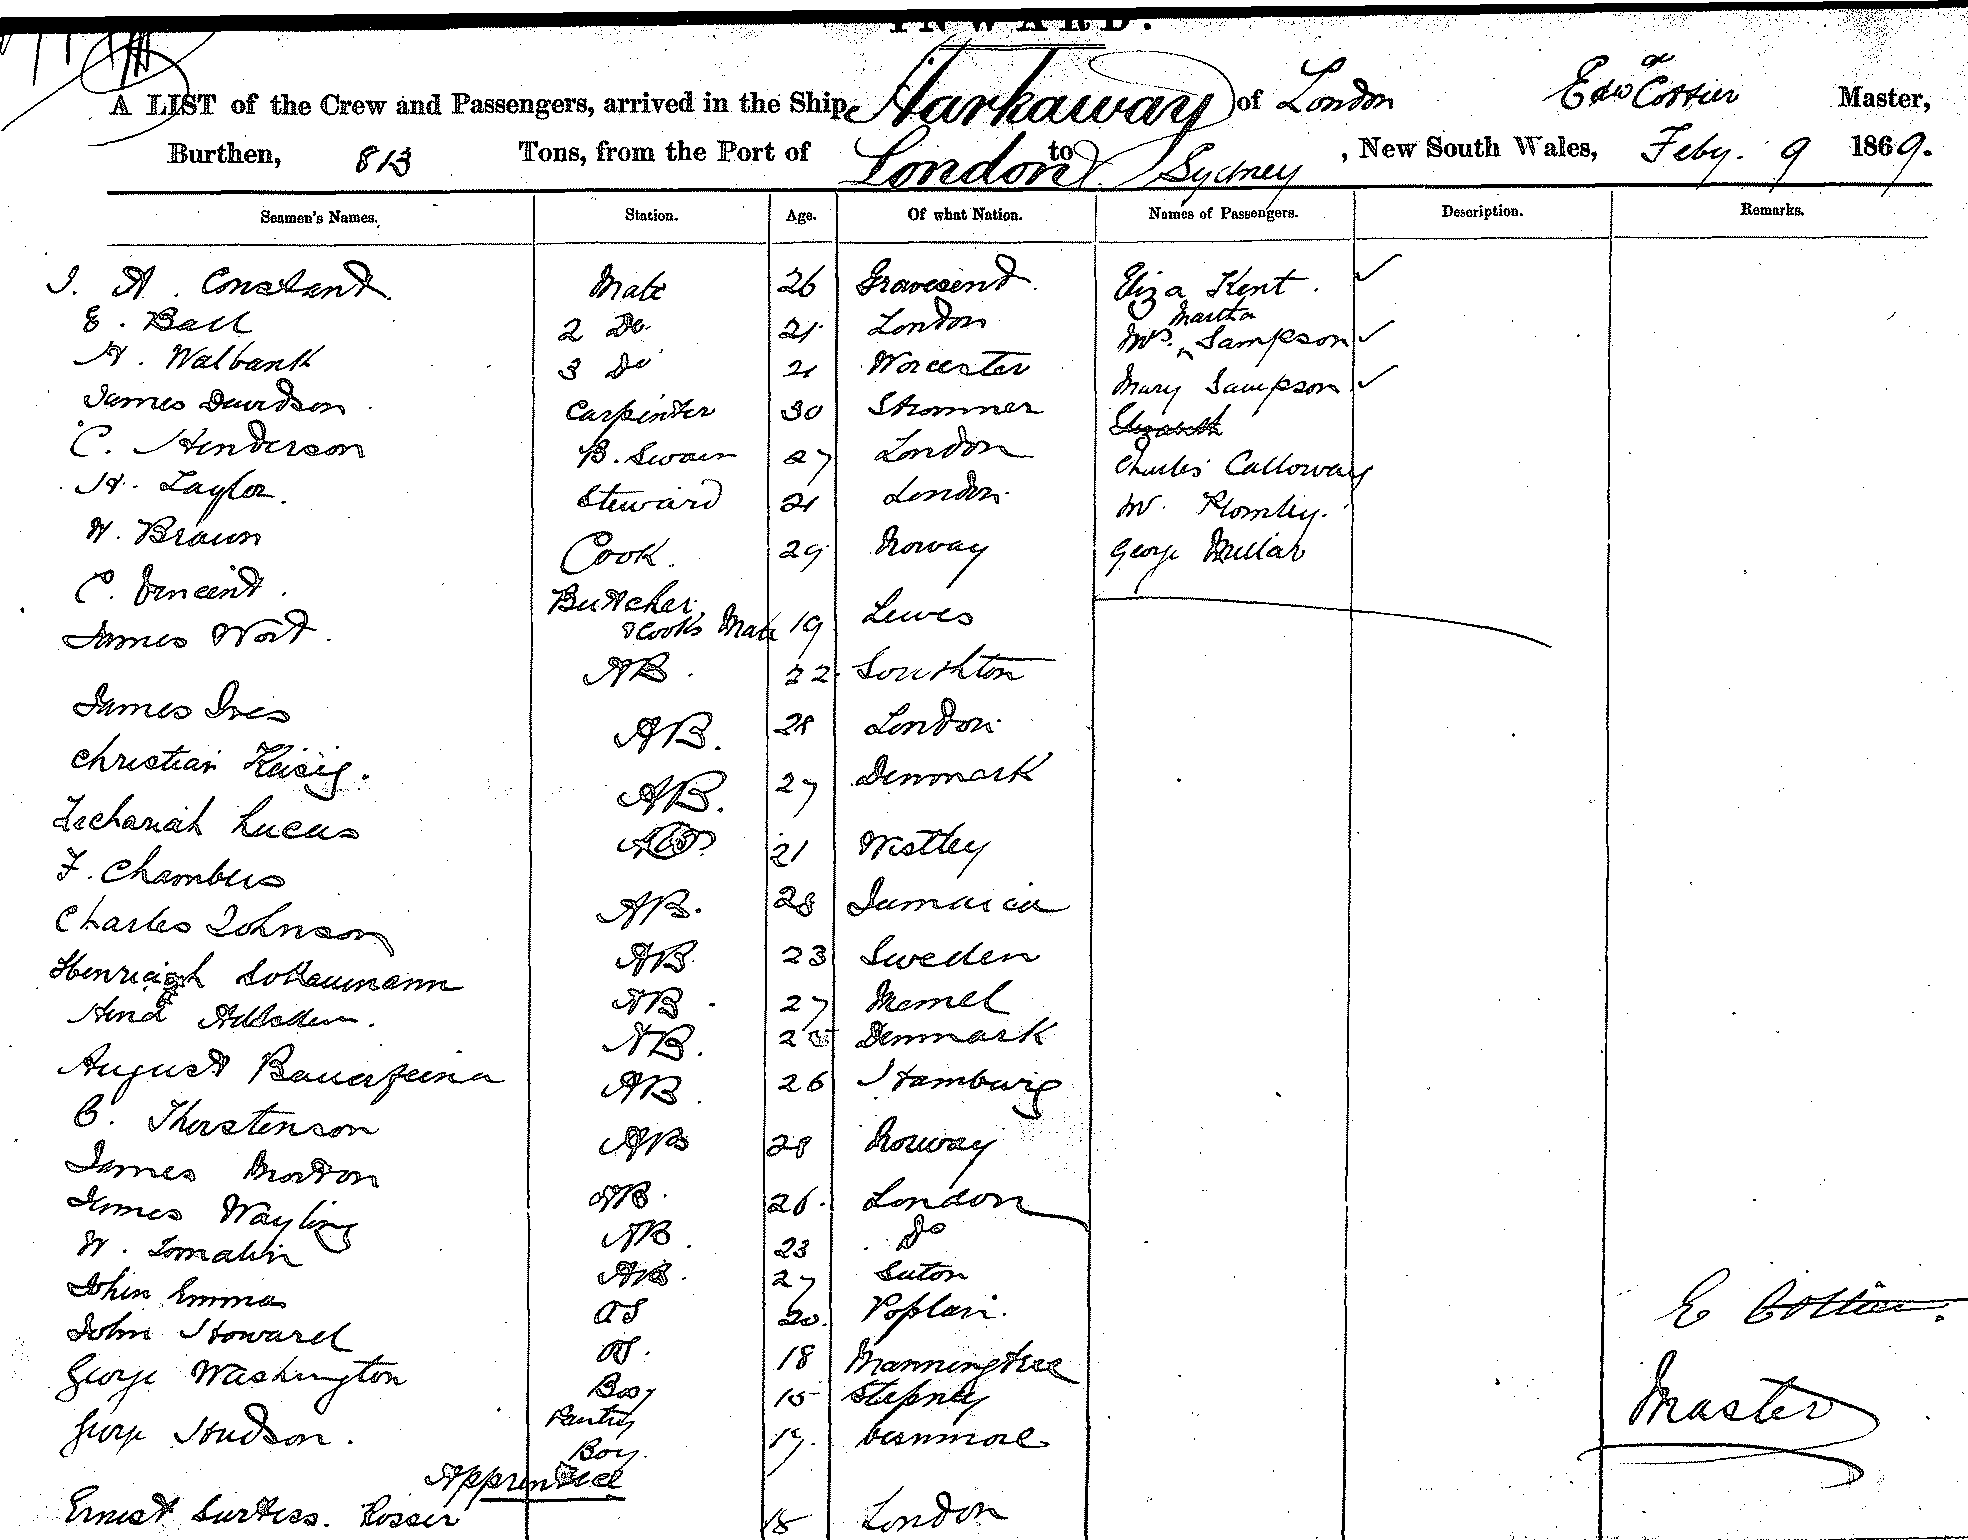 INWARD.
A LIST of the Crew and Passengers, arrived in the Ship Harkaway of London Edwd Cottier Master,
Burthen, 813 Tons, from the Port of London to Sydney, New South Wales, Feby. 9 1869.
Seamen's Names. Station. Age. Of what Nation. Names of Passengers. Description. Remarks.
J. A. Constant Mate 26 Gravesend Eliza Kent. ✓
E. Ball 2 Do 21 London Mrs. Martha Sampson ✓
H. Walbank 3 Do 21 Worcester Mary Sampson ✓
James Davidson Carpenter 30 Stromner Elizabeth
C. Henderson B. Swain 27 London Charles Calloway
H. Taylor. Steward 21 London W. Plomley.
W. Braun Cook. 29 Norway George Millar
C. Vincent. Butcher & Cooks Mate 19 Lewes
James Wort. AB. 22 Southton
James Ives AB. 28 London
Christian AB. 27 Denmark
Zechariah Lucas AB 21 Westley
F. Chambers AB. 28 Jamaica
Charles Johnson AB 23 Sweden
Henrich Schaumann AB. 27 Memel
AB. Denmark
August AB. 26 Hamburg
Thorstenson AB 28 Norway
James Morton AB. 26. London
James Wayling AB. 23 Do
W. Tomalin AB. 27 Suton
John Emma OS 20. Poplar.
John Howard OS. 18 Manningtree
George Washington Boy 15 Stepney
George Hudson. Pantry Boy. 17.
Apprentice
Ernest Surtess. Rosser 18 London
E Cottier.
Master